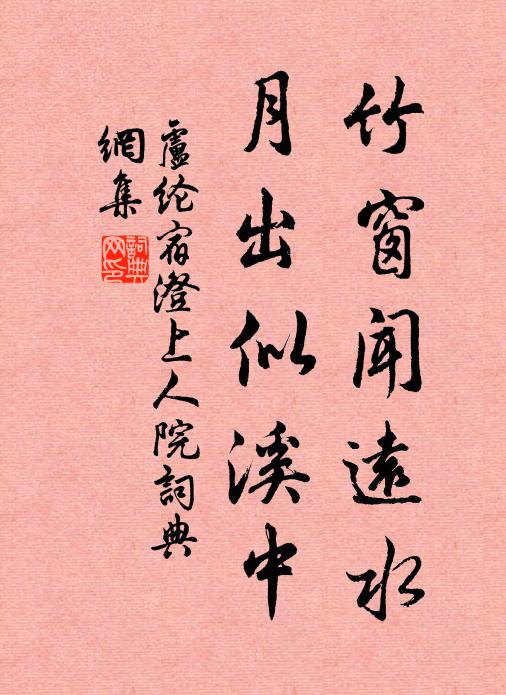 竹窗闻遠水
月出似溪中
盧纶宿澄上人院詞典
網集
詞典网印